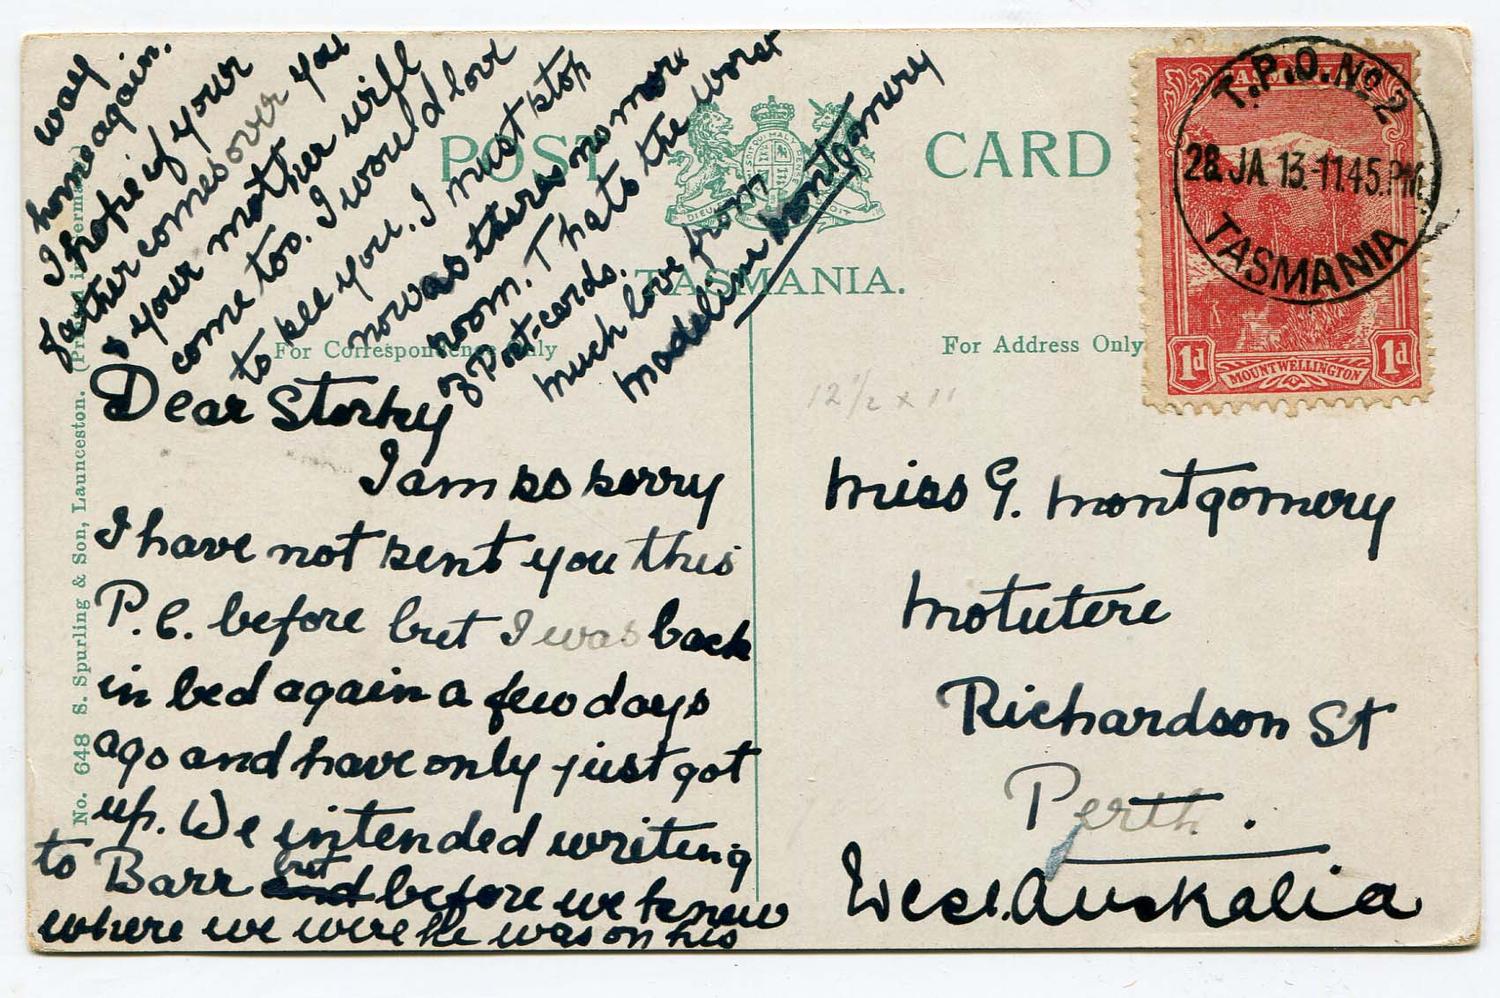 POST CARD
TASMANIA.
For Correspondence Only
For Address Only
No. 648 S. Spurling & Son, Launceston. (Printed in Germany)
DIEU ET MON DROIT
T.P.O. No 2
28 JA 13-11.45.PM
TASMANIA
TASMANIA
1d
MOUNT WELLINGTON
1d
12½ x 11
Dear Storky
I am so sorry
I have not sent you this
P.C. before but I was back
in bed again a few days
ago and have only just got
up. We intended writing
to Barr and but before we knew
where we were he was on his
way
home again.
I hope if your
father comes over you
& your mother will
come too. I would love
to see you. I must stop
now as theres no more
room. Thats the worst
of Post-cards.
Much love from
Madeline Montgomery
Miss G. Montgomery
Motutere
Richardson St
Perth.
West Australia